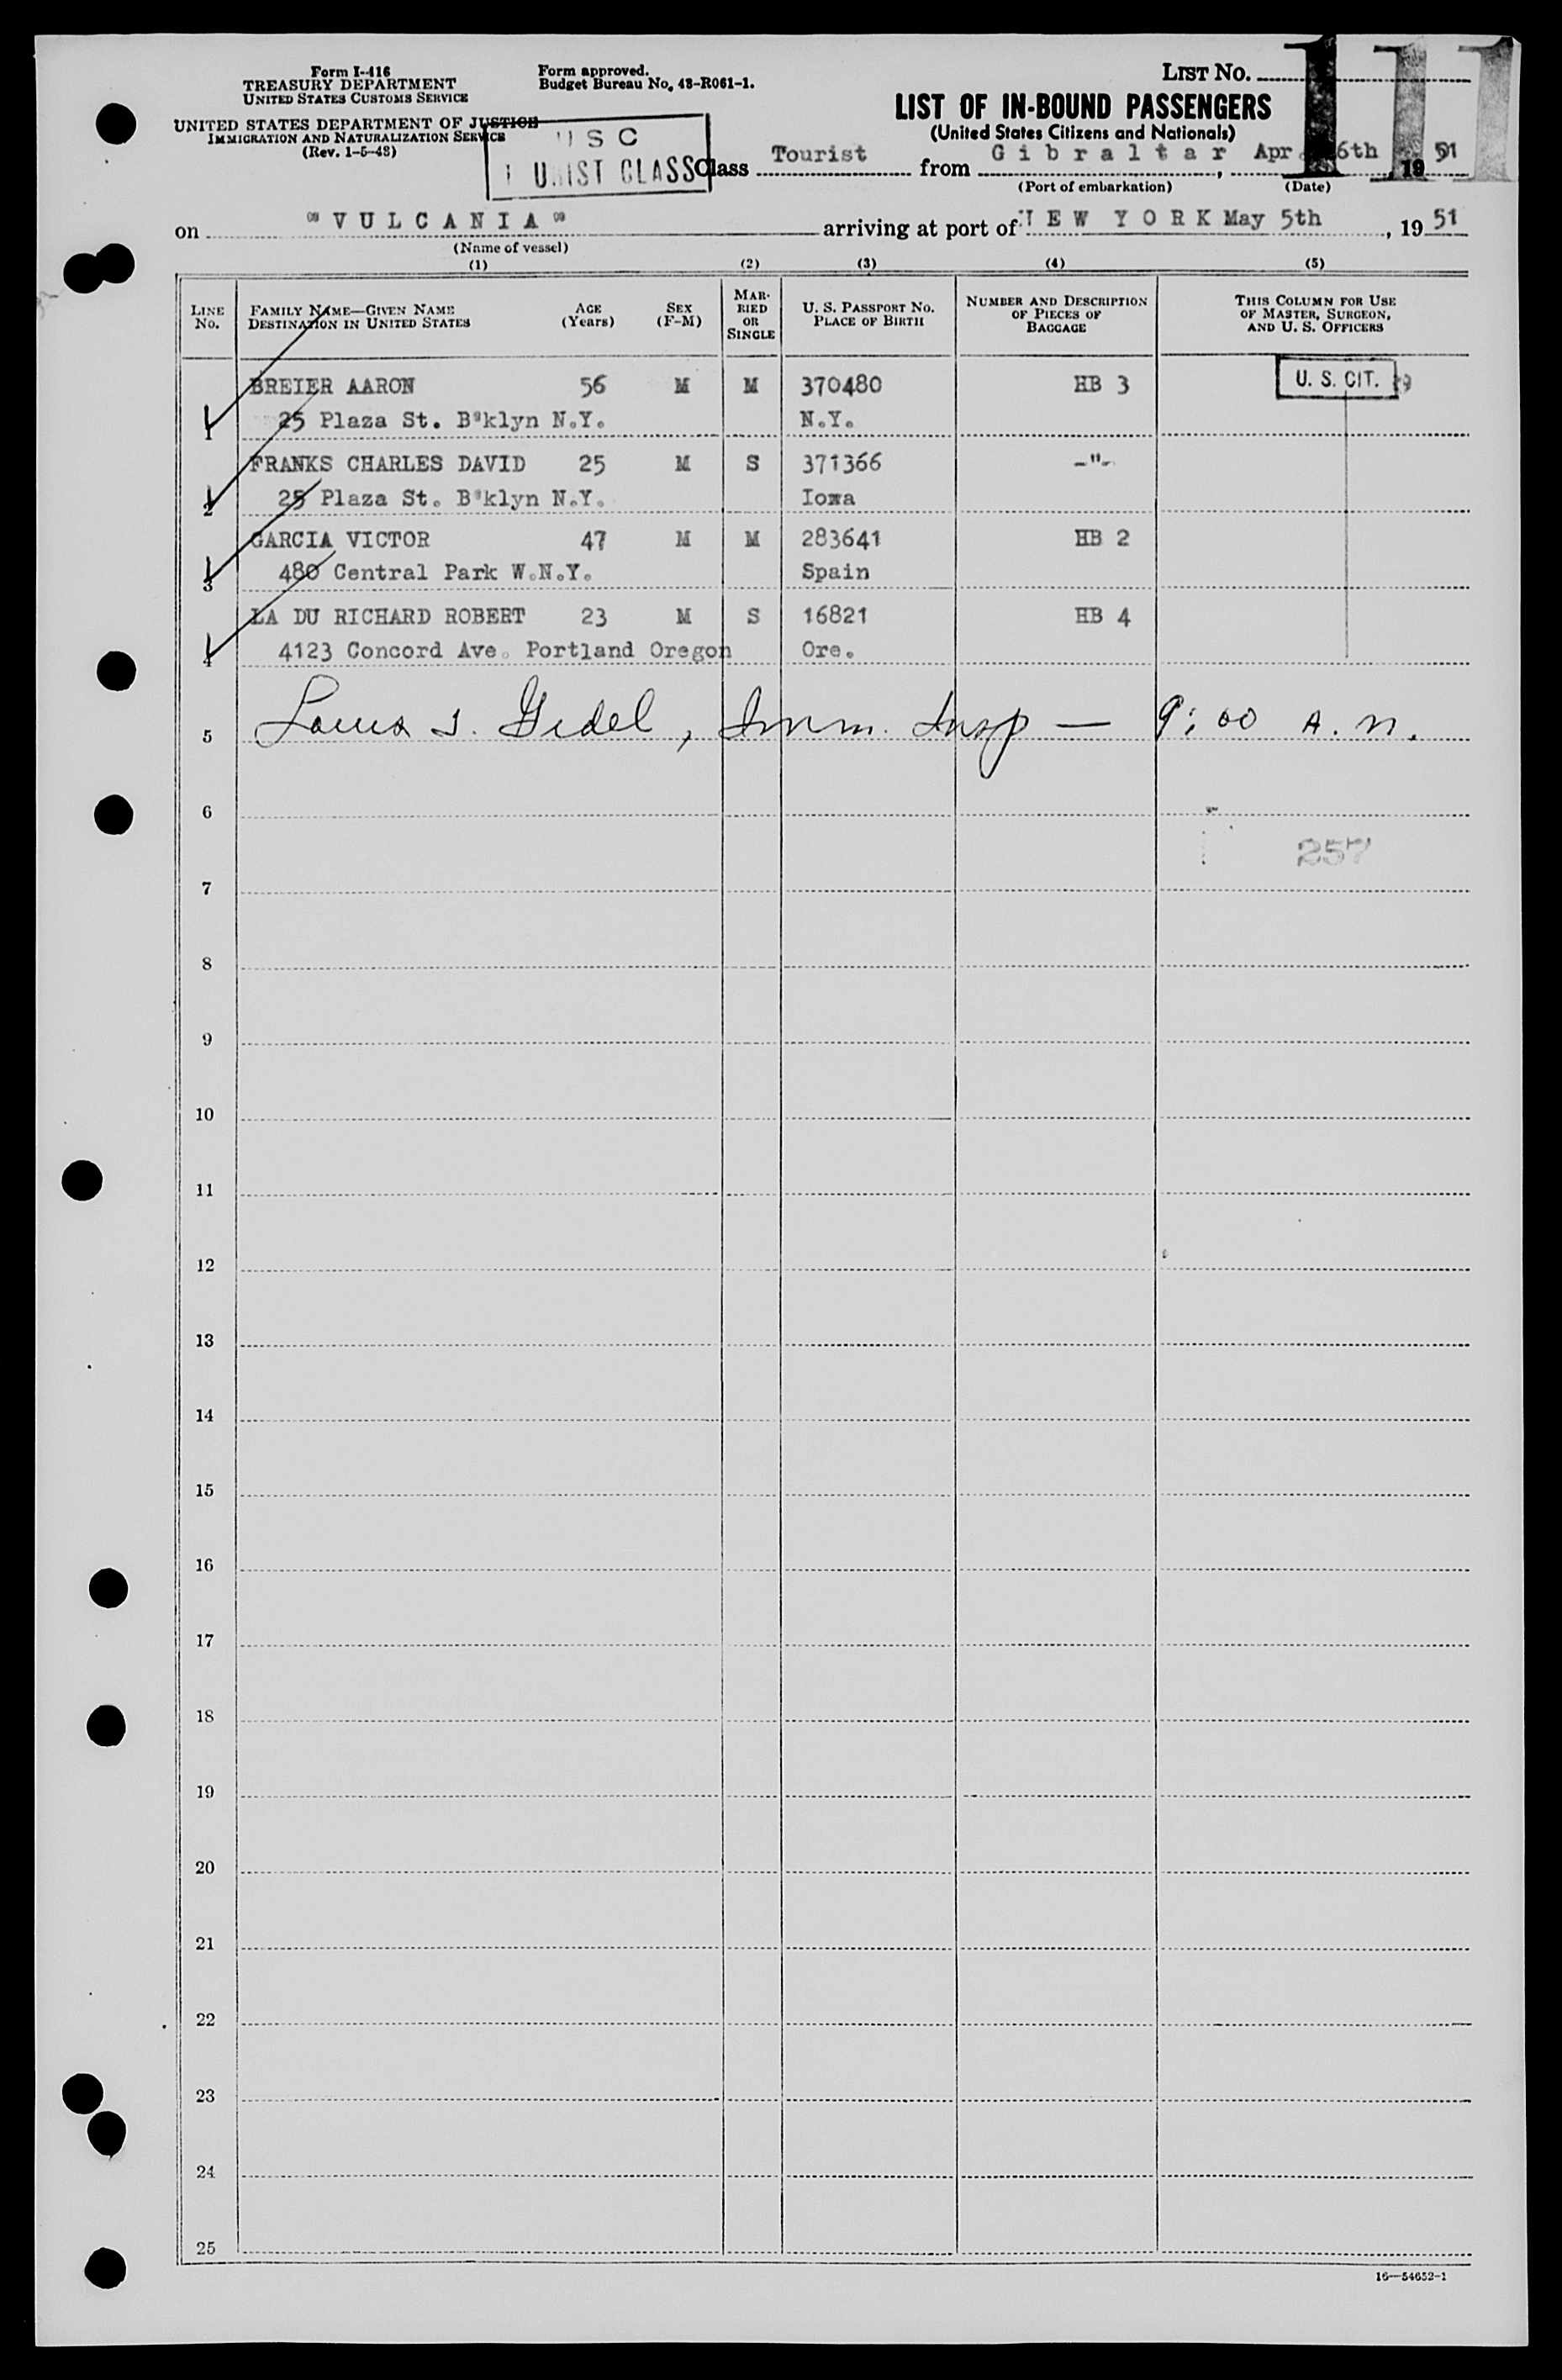 Form I-416
TREASURY DEPARTMENT
UNITED STATES CUSTOMS SERVICE
UNITED STATES DEPARTMENT OF JUSTICE
IMMIGRATION AND NATURALIZATION SERVICE
(Rev. 1-5-48)
Form approved.
Budget Bureau No. 43-R061-1.
USC
CLASS
LIST No. 111
LIST OF IN-BOUND PASSENGERS
(United States Citizens and Nationals)
Class Tourist from Gibraltar, Apr 6th, 1951
(Port of embarkation) (Date)
on "VULCANIA" arriving at port of NEW YORK May 5th, 1951
(Name of vessel)
(1) (2) (3) (4) (5)
LINE No. FAMILY NAME—GIVEN NAME DESTINATION IN UNITED STATES AGE (Years) SEX (F-M) MARRIED OR SINGLE U. S. PASSPORT NO. PLACE OF BIRTH NUMBER AND DESCRIPTION OF PIECES OF BAGGAGE THIS COLUMN FOR USE OF MASTER, SURGEON, AND U. S. OFFICERS
BREIER AARON 56 M M 370480 HB 3 U. S. CIT.
1 25 Plaza St. B'klyn N.Y. N.Y.
FRANKS CHARLES DAVID 25 M S 371366 -"-
2 25 Plaza St. B'klyn N.Y. Iowa
GARCIA VICTOR 47 M M 283641 HB 2
3 480 Central Park W.N.Y. Spain
LA DU RICHARD ROBERT 23 M S 16821 HB 4
4 4123 Concord Ave. Portland Oregon Ore.
5 Louis I. Gidel, Imm. Insp — 9:00 A.M.
6
257
7
8
9
10
11
12
13
14
15
16
17
18
19
20
21
22
23
24
25
16—54652-1